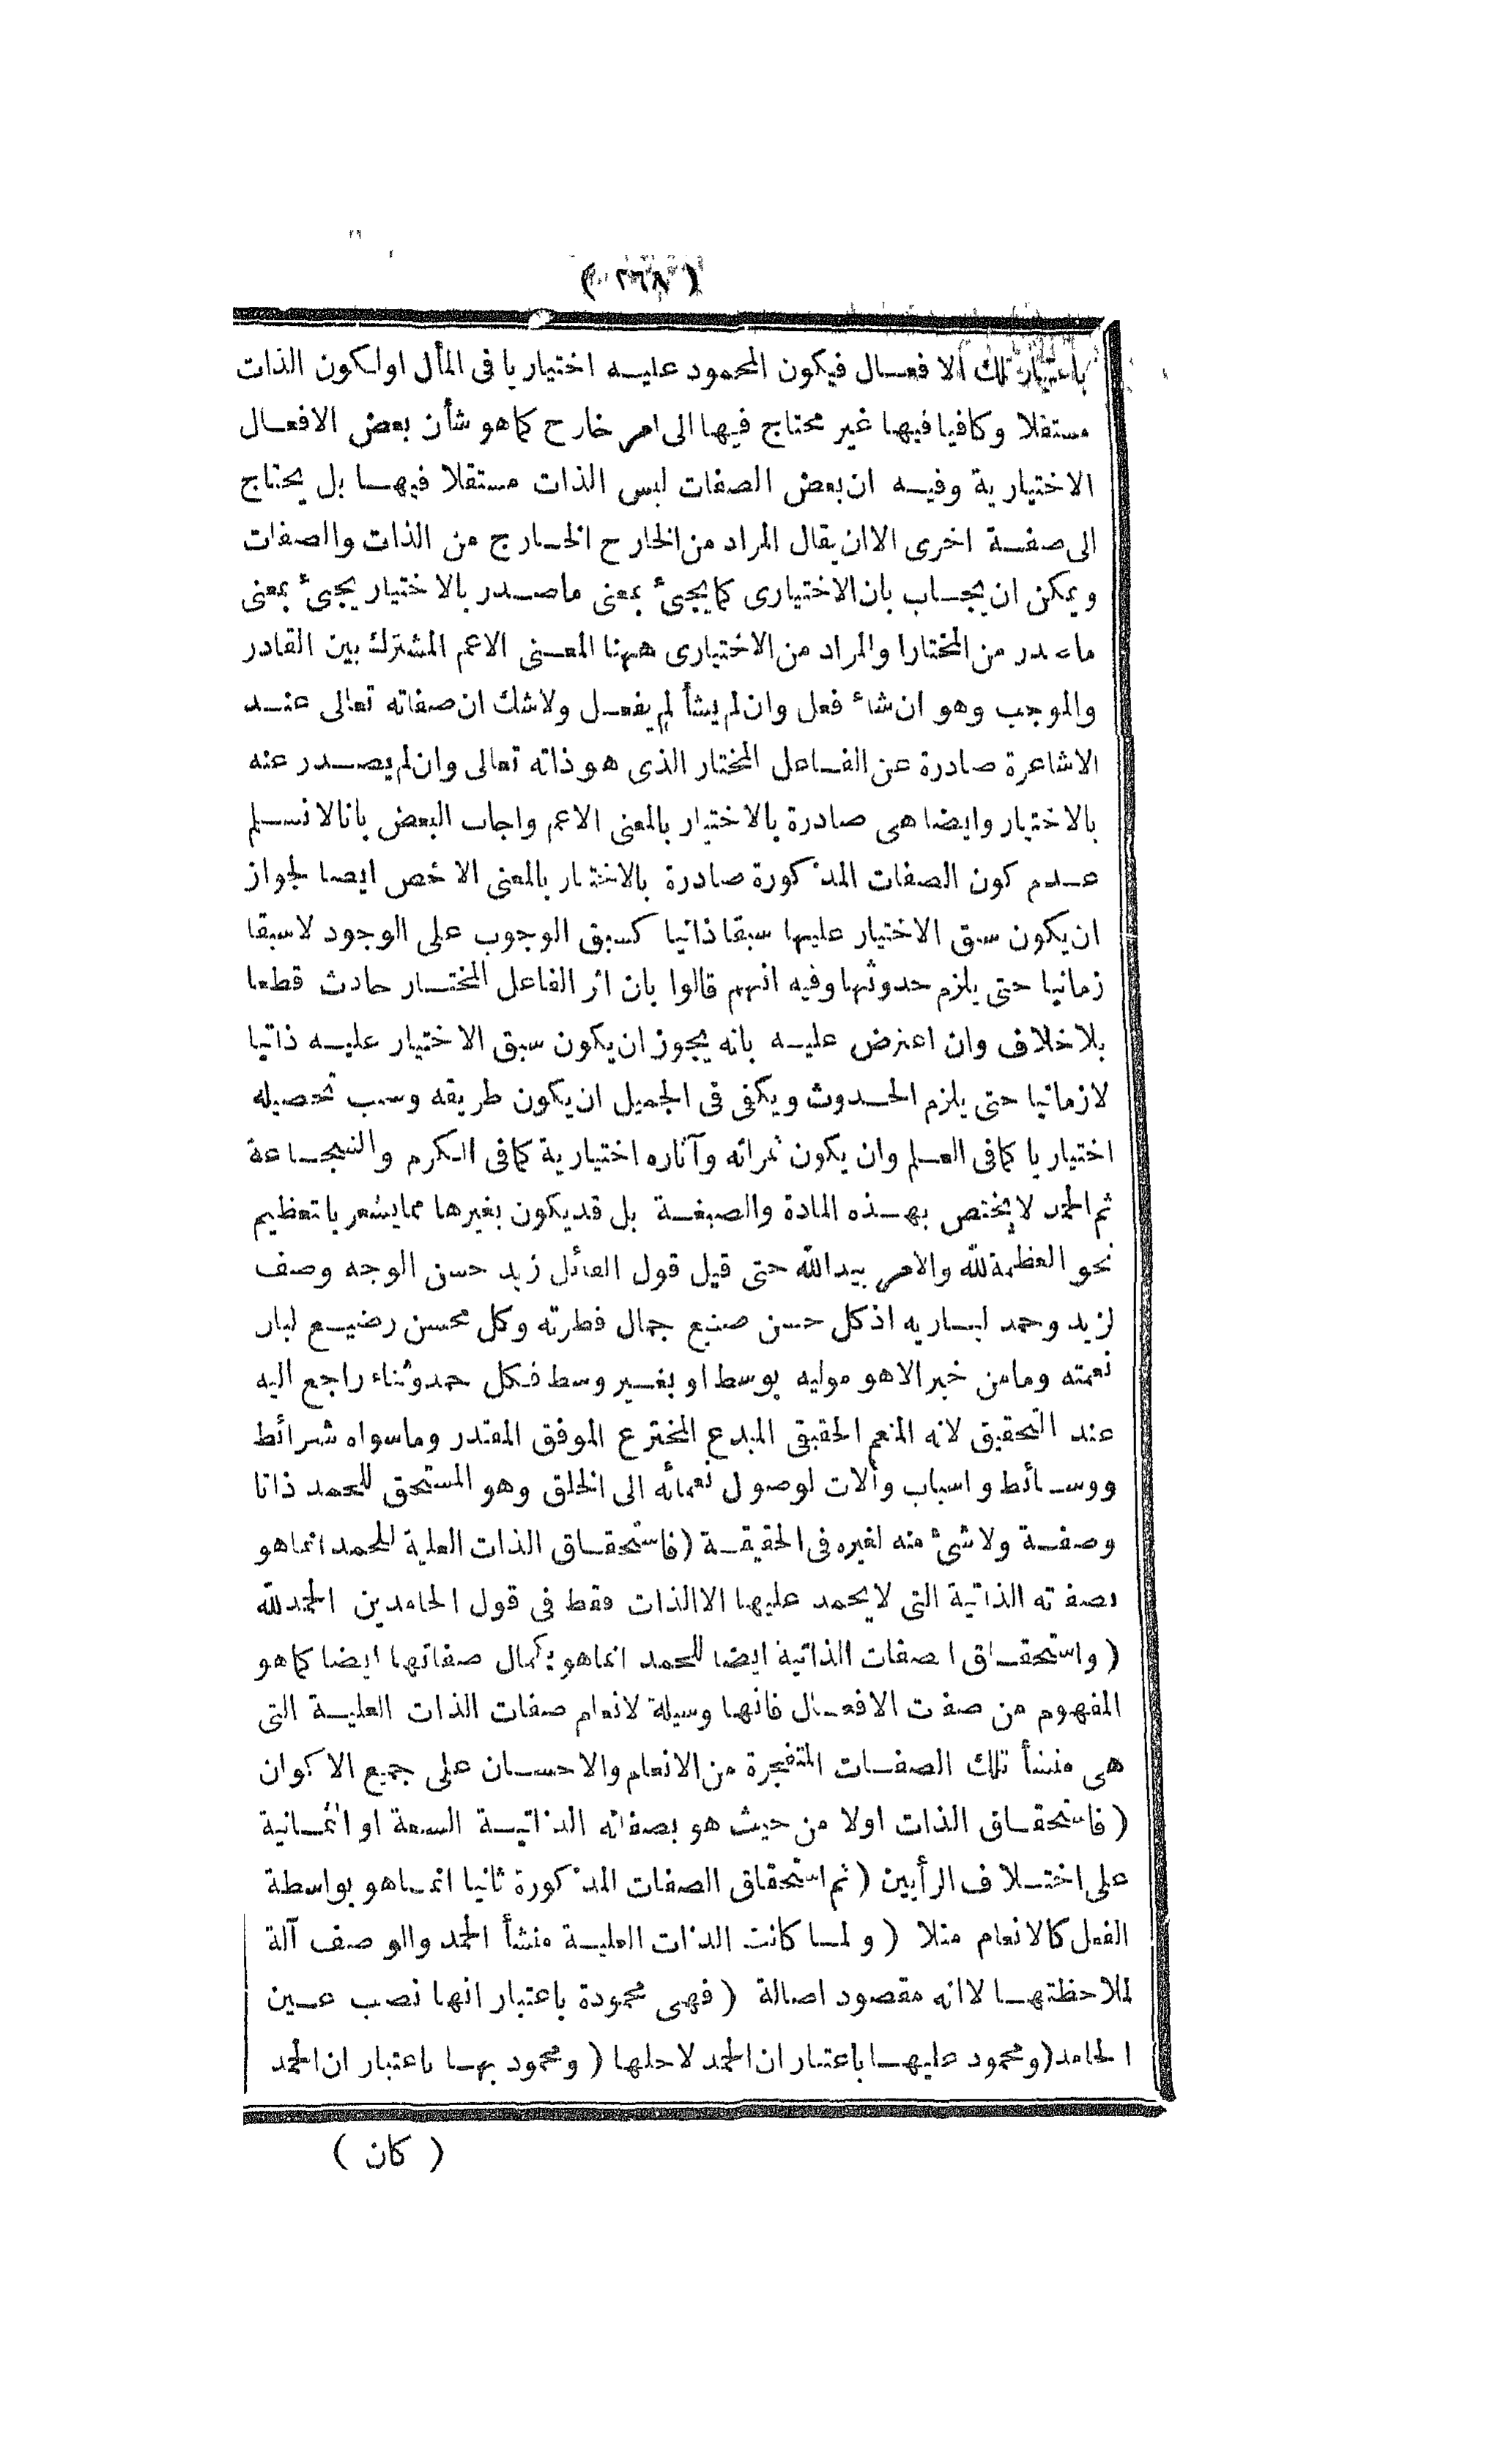 ( ٢٦٨ )
باعتبار تلك الافعال فيكون المحمود عليه اختياريا فى المأل اولكون الذات
مستقلا وكافيا فيها غير محتاج فيها الى امر خارح كماهو شأن بعض الافعال
الاختيارية وفيه ان بعض الصفات لبس الذات مستقلا فيها بل يحتاج
الى صفة اخرى الاان يقال المراد من الخارح الخارج من الذات والصفات
ويمكن ان يجاب بان الاختيارى كمايجئ بمعنى ماصدر بالاختيار يجئ بمعنى
ماصدر من المختارا والمراد من الاختيارى ههنا المعنى الاعم المشترك بين القادر
والموجب وهو ان شاء فعل وان لم يشأ لم يفعل ولاشك ان صفاته تعالى عند
الاشاعرة صادرة عن الفاعل المختار الذى هو ذاته تعالى وان لم يصدر عنه
بالاختيار وايضا هى صادرة بالاختيار بالمعنى الاعم واجاب البعض بانالانسلم
عدم كون الصفات المذكورة صادرة بالاختيار بالمعنى الاخص ايضا لجواز
ان يكون سبق الاختيار عليها سبقا ذاتيا كسبق الوجوب على الوجود لاسبقا
زمانيا حتى يلزم حدوثها وفيه انهم قالوا بان اثر الفاعل المختار حادث قطعا
بلاخلاف وان اعترض عليه بانه يجوز ان يكون سبق الاختيار عليه ذاتيا
لازمانيا حتى يلزم الحدوث ويكفى فى الجميل ان يكون طريقه وسبب تحصيله
اختياريا كمافى العلم وان يكون ثمراته وآثاره اختيارية كمافى الكرم والشجاعة
ثم الحمد لايختص بهذه المادة والصيغة بل قد يكون بغيرها ممايشعر بالتعظيم
نحو العظمة لله والامر بيد الله حتى قيل قول القائل زيد حسن الوجه وصف
لزيد وحمد لباريه اذ كل حسن صنيع جمال فطرته وكل محسن رضيع لبان
نعمته ومامن خير الاهو موليه بوسط او بغير وسط فكل حمد وثناء راجع اليه
عند التحقيق لانه المنعم الحقيقى المبدع المخترع الموفق المقتدر وماسواه شرائط
ووسائط واسباب وآلات لوصول نعمائه الى الخلق وهو المستحق للحمد ذاتا
وصفة ولاشئ منه لغيره فى الحقيقة (فاستحقاق الذات العلية للحمد انماهو
بصفاته الذاتية التى لايحمد عليها الاالذات فقط فى قول الحامدين الحمدلله
( واستحقاق الصفات الذاتية ايضا للحمد انماهو بكمال صفاتها ايضا كماهو
المفهوم من صفات الافعال فانها وسيلة لانعام صفات الذات العلية التى
هى منشأ تلك الصفات المتفجرة من الانعام والاحسان على جميع الاكوان
( فاستحقاق الذات اولا من حيث هو بصفاته الذاتية السبعة او الثمانية
على اختلاف الرأيين ( ثم استحقاق الصفات المذكورة ثانيا انماهو بواسطة
الفعل كالانعام مثلا ( ولما كانت الذات العلية منشأ الحمد والوصف آلة
لملاحظتها لاانه مقصود اصالة ( فهى محمودة باعتبار انها نصب عين
الحامد (ومحمود عليها باعتبار ان الحمد لاجلها ( ومحمود بها باعتبار ان الحمد
( كان )